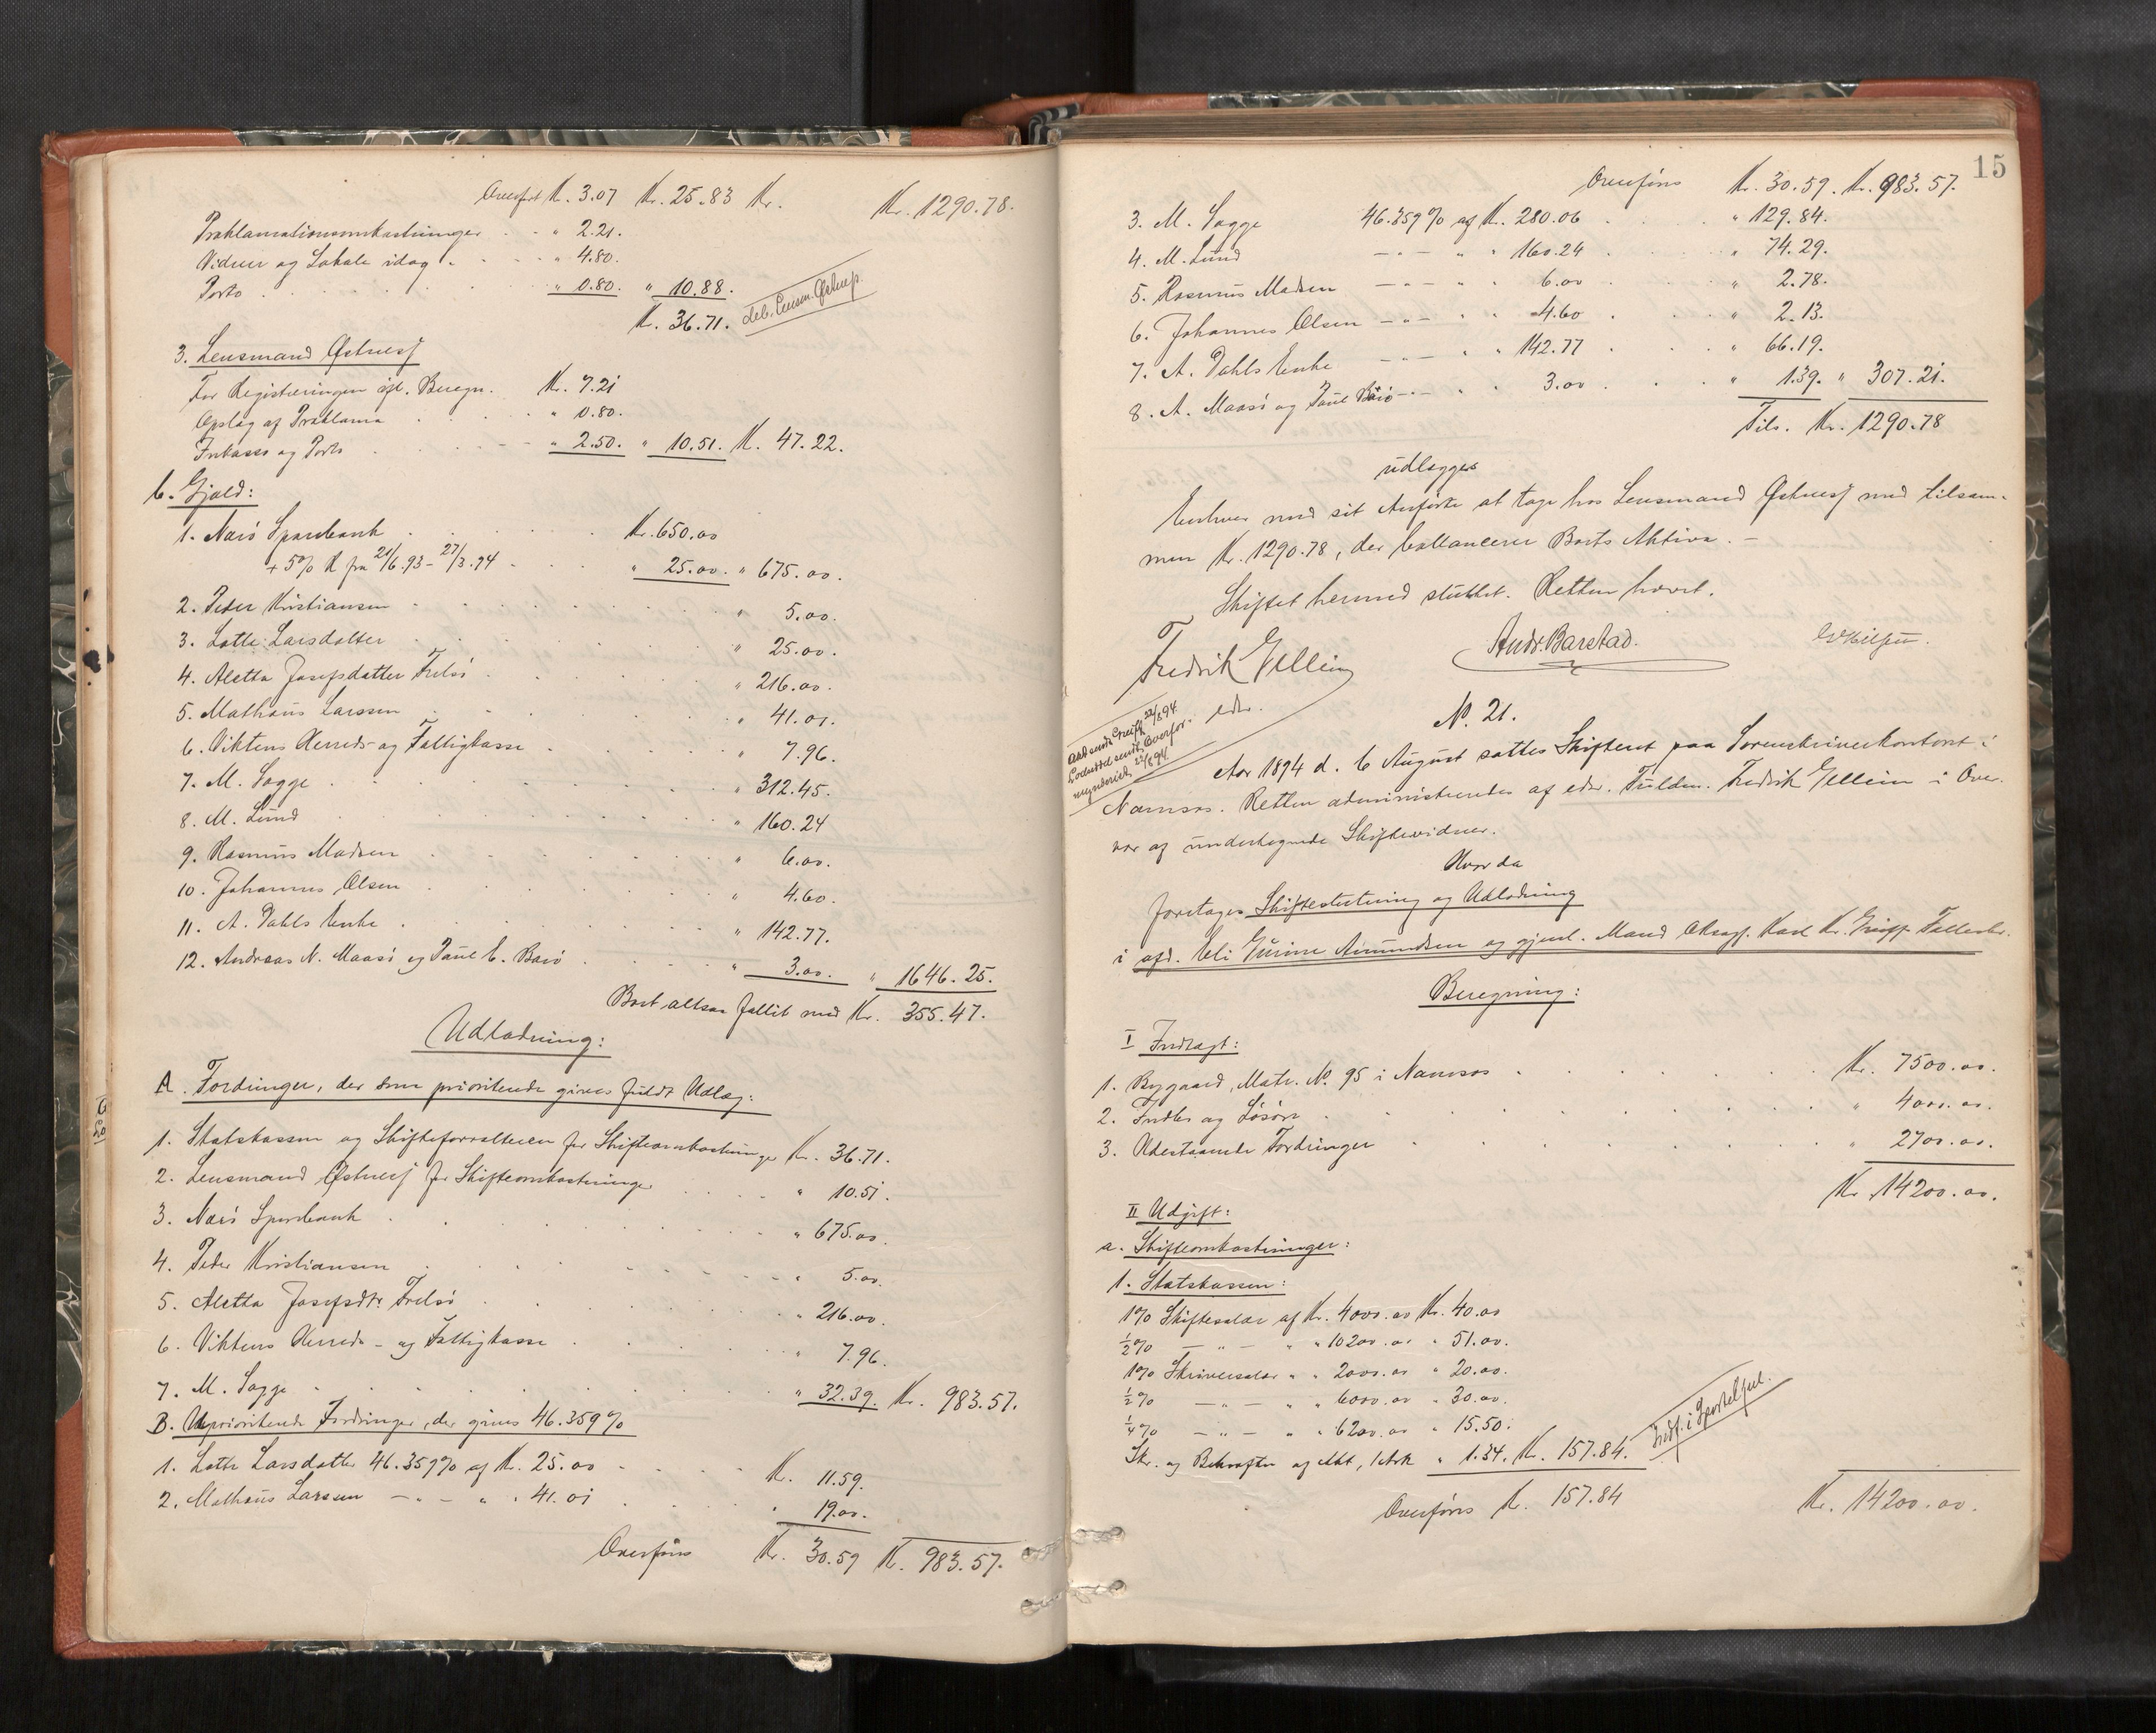 Overført Kr. 3.07 Kr. 25.83 Kr. Kr. 1290.78.
Proklamationsomkostninger " 2.21.
Vidner og Lokale idag " 4.80.
Porto " 0.80. " 10.88.
Kr. 36.71. deb. Lensm.
3. Lensmand
For Registreringen efl. Beregn. Kr. 7.21
Opslag af Proklama " 0.80.
Inkasso og Porto " 2.50. " 10.51. Kr. 47.22.
b. Gjæld:
1. Nærö Sparebank Kr. 650.00
+ 5% R fra 21/6.93 - 27/3.94 " 25.00. " 675.00.
2. Peder Kristiansen " 5.00.
3. Lotte Larsdatter " 25.00.
4. Aletta Josefsdatter Frelsö " 216.00.
5. Mathæus Larssen " 41.01.
6. Viktens Herreds- og Fattigkasse " 7.96.
7. M. Sagge " 312.45.
8. M. Lund " 160.24
9. Rasmus Madsen " 6.00.
10. Johannes Olsen " 4.60.
11. A. Dahls Enke " 142.77.
12. Andreas N. Maasö og Paul E. Borö " 3.00. " 1646.25.
Boet altsaa fallit med Kr. 355.47.
Udlodning:
A. Fordringer, der som prioriterede gives fuldt Udlæg:
1. Statskassen og Skifteforvalteren for Skifteomkostninger Kr. 36.71.
2. Lensmand for Skifteomkostninger " 10.51.
3. Nærö Sparebank " 675.00.
4. Peder Kristiansen " 5.00.
5. Aletta Josefsdtr. Frelsö " 216.00.
6. Viktens Herreds- og Fattigkasse " 7.96.
7. M. Sagge " 32.39. Kr. 983.57.
B. Uprioriterede Fordringer, der gives 46.359%
1. Lotte Larsdatter 46.359% af Kr. 25.00 Kr. 11.59.
2. Mathæus Larssen — " — " " 41.01 " 19.00.
Overføres Kr. 30.59 Kr. 983.57.
15
Overføres Kr. 30.59. Kr. 983.57.
3. M. Sagge 46.359% af Kr. 280.06 " 129.84.
4. M. Lund — " — " " 160.24 " 74.29.
5. Rasmus Madsen — " — " " 6.00 " 2.78.
6. Johannes Olsen — " — " " 4.60 " 2.13.
7. A. Dahls Enke — " — " " 142.77 " 66.19.
8. A. Maasö og Paul Borö — " — " " 3.00 " 1.39. " 307.21.
Tils. Kr. 1290.78
udlægges
Enhver med sit Anførte at tage hos Lensmand med tilsam-
men Kr. 1290.78, der ballancerer Boets Aktiva. —
Skiftet hermed sluttet. Retten hævet.
Fredrik Gellein Andr. Barstad.
edsv.
No. 21.
Aar 1894 d. 6 August sattes Skifteret paa Sorenskriverkontoret i
Namsos. Retten administreredes af edsv. Fuldm. Fredrik Gellein i Over-
vær af undertegnede Skiftevidner.
Hvorda
foretoges Skifteslutning og Udlodning
i afd. Eli Gurine Amundsen og gjenl. Mand Karl Kr. Fællesbo.
Beregning:
I Indtægt:
1. Bygaard, Matr. No. 95 i Namsos Kr. 7500.00.
2. Indbo og Løsøre " 4000.00.
3. Udestaaende Fordringer " 2700.00.
Kr. 14200.00.
II Udgift:
a. Skifteomkostninger:
1. Statskassen:
1% Skiftesalær af Kr. 4000.00 Kr. 40.00
½% — " — " " 10200.00 " 51.00.
1% Skriversalær " " 2000.00 " 20.00.
½% — " — " " 6000.00 " 30.00.
¼% — " — " " 6200.00 " 15.50.
Skr. og Bekræftn. og Akt, 1 Ark " 1.34. Kr. 157.84. Indf. i Sporteljul.
Overføres Kr. 157.84 Kr. 14200.00.